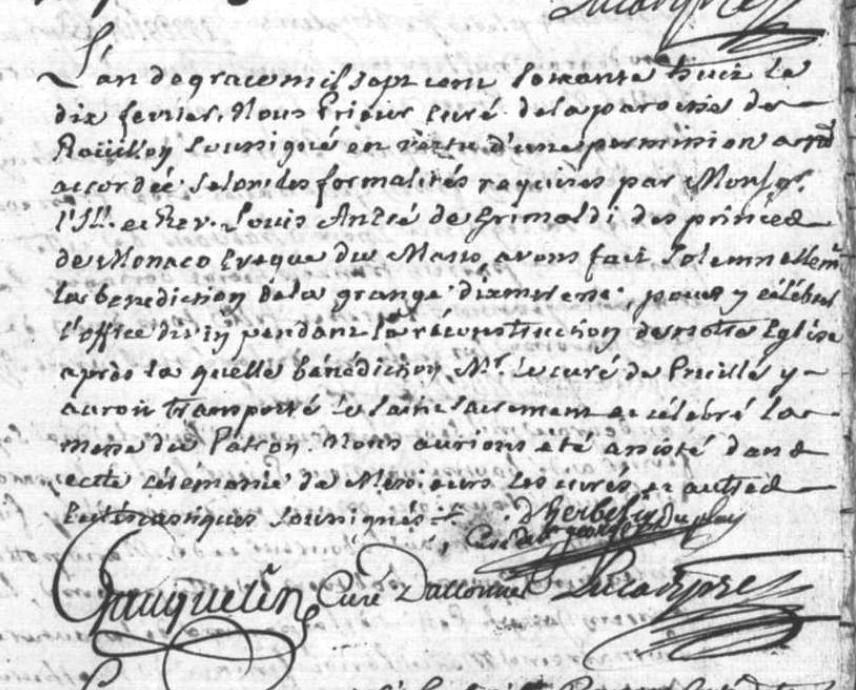 L'an de grace mil sept cent soixante huit le
dix fevrier. Nous Prieur curé de la paroisse de
Roüillon soussigné en vertu d'une permission a nous
accordée selon les formalités requises par Monsgr.
l'Ill. et Rev. Louis André de Grimaldi des princes
de Monaco Eveque du Mans, avons fait solemnellemt
la benediction de la grange dixmeresse, pour y célébrer
l'office divin pendant la réconstruction de notre Eglise
après la quelle bénédiction Mr. le curé de Pruillé y
auroit transporté le saint sacrement et célébré la
messe du Patron. Nous aurions été assisté dans
cette cérémonie de Messieurs les curés et autres
Ecclésiastiques soussignés
curé de St george Du play
Gauquelin Curé Dallonnes